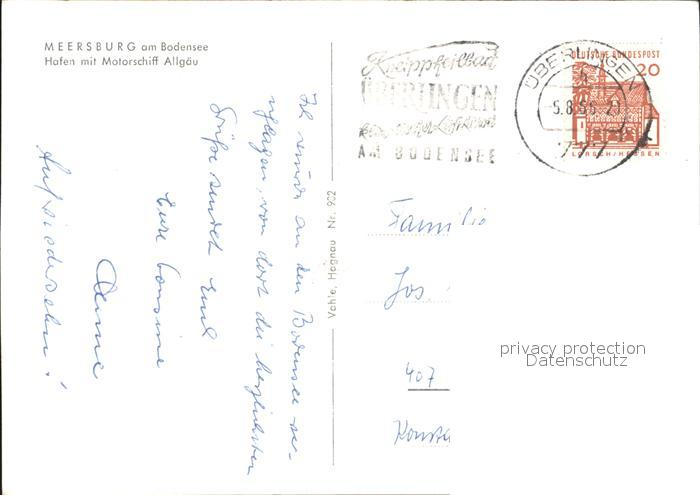 MEERSBURG am Bodensee
Hafen mit Motorschiff Allgäu
Kneippheilbad
ÜBERLINGEN
AM BODENSEE
ÜBERLINGEN
-5.8.
777
DEUTSCHE BUNDESPOST
20
LORSCH/HESSEN
Ich wurde an den Bodensee ver-
von dort die herzlichsten
Grüße sendet Euch
Eure Cousine
Auf Wiedersehen!
Vahle, Hagnau Nr. 902
Familie
Jos.
407
Konsta
privacy protection
Datenschutz